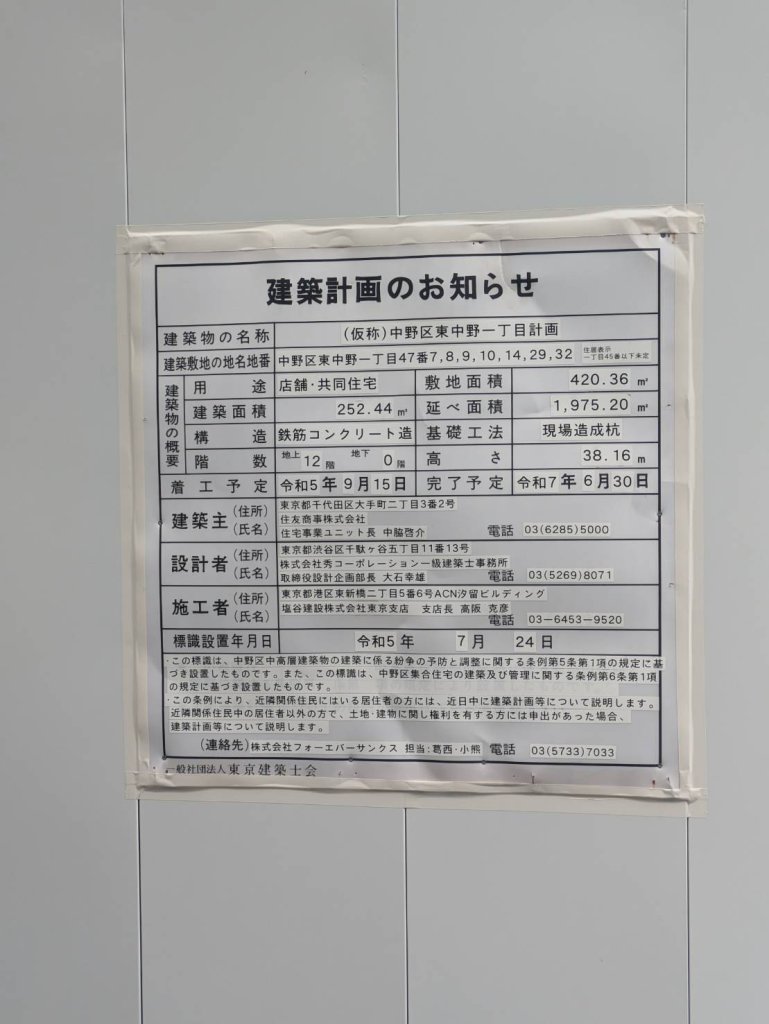 建築計画のお知らせ
建築物の名称 (仮称)中野区東中野一丁目計画
建築敷地の地名地番 中野区東中野一丁目47番7,8,9,10,14,29,32 住居表示 一丁目45番以下未定
建築物の概要
用途 店舗・共同住宅 敷地面積 420.36 ㎡
建築面積 252.44 ㎡ 延べ面積 1,975.20 ㎡
構造 鉄筋コンクリート造 基礎工法 現場造成杭
階数 地上 12 階 地下 0 階 高さ 38.16 m
着工予定 令和5年 9月15日 完了予定 令和7年 6月30日
建築主 (住所) 東京都千代田区大手町二丁目3番2号
住友商事株式会社
(氏名) 住宅事業ユニット長 中脇啓介 電話 03(6285)5000
設計者 (住所) 東京都渋谷区千駄ヶ谷五丁目11番13号
株式会社秀コーポレーション一級建築士事務所
(氏名) 取締役設計企画部長 大石幸雄 電話 03(5269)8071
施工者 (住所) 東京都港区東新橋二丁目5番6号ACN汐留ビルディング
(氏名) 塩谷建設株式会社東京支店 支店長 高阪 克彦
電話 03-6453-9520
標識設置年月日 令和5年 7月 24日
・この標識は、中野区中高層建築物の建築に係る紛争の予防と調整に関する条例第5条第1項の規定に基
づき設置したものです。また、この標識は、中野区集合住宅の建築及び管理に関する条例第6条第1項
の規定に基づき設置したものです。
・この条例により、近隣関係住民にはいる居住者の方には、近日中に建築計画等について説明します。
近隣関係住民中の居住者以外の方で、土地・建物に関し権利を有する方には申出があった場合、
建築計画等について説明します。
(連絡先) 株式会社フォーエバーサンクス 担当:葛西・小熊 電話 03(5733)7033
一般社団法人 東京建築士会